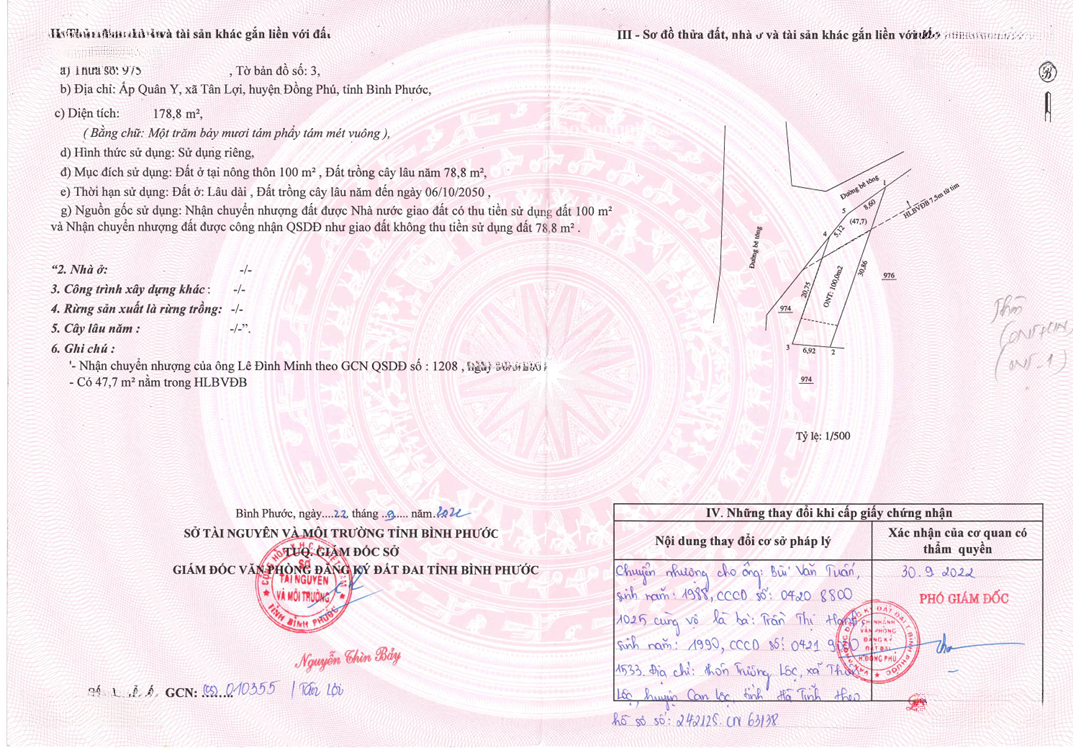 II- Thửa đất, nhà ở và tài sản khác gắn liền với đất
a) Thửa số: 975 , Tờ bản đồ số: 3,
b) Địa chỉ: Ấp Quân Y, xã Tân Lợi, huyện Đồng Phú, tỉnh Bình Phước,
c) Diện tích: 178,8 m²,
( Bằng chữ: Một trăm bảy mươi tám phẩy tám mét vuông ),
d) Hình thức sử dụng: Sử dụng riêng,
đ) Mục đích sử dụng: Đất ở tại nông thôn 100 m² , Đất trồng cây lâu năm 78,8 m²,
e) Thời hạn sử dụng: Đất ở: Lâu dài , Đất trồng cây lâu năm đến ngày 06/10/2050 ,
g) Nguồn gốc sử dụng: Nhận chuyển nhượng đất được Nhà nước giao đất có thu tiền sử dụng đất 100 m²
và Nhận chuyển nhượng đất được công nhận QSDĐ như giao đất không thu tiền sử dụng đất 78,8 m² .
“2. Nhà ở: -/-
3. Công trình xây dựng khác : -/-
4. Rừng sản xuất là rừng trồng: -/-
5. Cây lâu năm : -/-”.
6. Ghi chú :
'- Nhận chuyển nhượng của ông Lê Đình Minh theo GCN QSDĐ số : 1208 ,
- Có 47,7 m² nằm trong HLBVĐB
Bình Phước, ngày....22 tháng ..9.... năm.2022
SỞ TÀI NGUYÊN VÀ MÔI TRƯỜNG TỈNH BÌNH PHƯỚC
TUQ. GIÁM ĐỐC SỞ
GIÁM ĐỐC VĂN PHÒNG ĐĂNG KÝ ĐẤT ĐAI TỈNH BÌNH PHƯỚC
SỞ
TÀI NGUYÊN
VÀ MÔI TRƯỜNG
TỈNH BÌNH PHƯỚC
Nguyễn Thìn Bảy
GCN: 010355 / Tân Lợi
III - Sơ đồ thửa đất, nhà ở và tài sản khác gắn liền với
Đường bê tông
1
8,60
HLBVĐB 7.5m từ tim
1
5
(47,7)
5,12
4
Đường bê tông
30,86
976
20,75
ONT: 100,0m2
974
3
6,92
2
974
Tỷ lệ: 1/500
IV. Những thay đổi khi cấp giấy chứng nhận
Nội dung thay đổi cơ sở pháp lý
Xác nhận của cơ quan có
thẩm quyền
Chuyển nhượng cho ông: Bùi Văn Tuấn,
sinh năm: 1988, CCCD số: 0420 8800
1025 cùng vợ là bà: Trần Thị Hạnh,
sinh năm: 1990, CCCD số: 0421 9000
1533. Địa chỉ: thôn Trường Lộc, xã
Lộc, huyện Can Lộc, tỉnh Hà Tĩnh theo
hồ sơ số: 242128. CN 63138
30.9.2022
PHÓ GIÁM ĐỐC
CHI NHÁNH
VĂN PHÒNG
ĐĂNG KÝ
ĐẤT ĐAI
H.ĐỒNG PHÚ